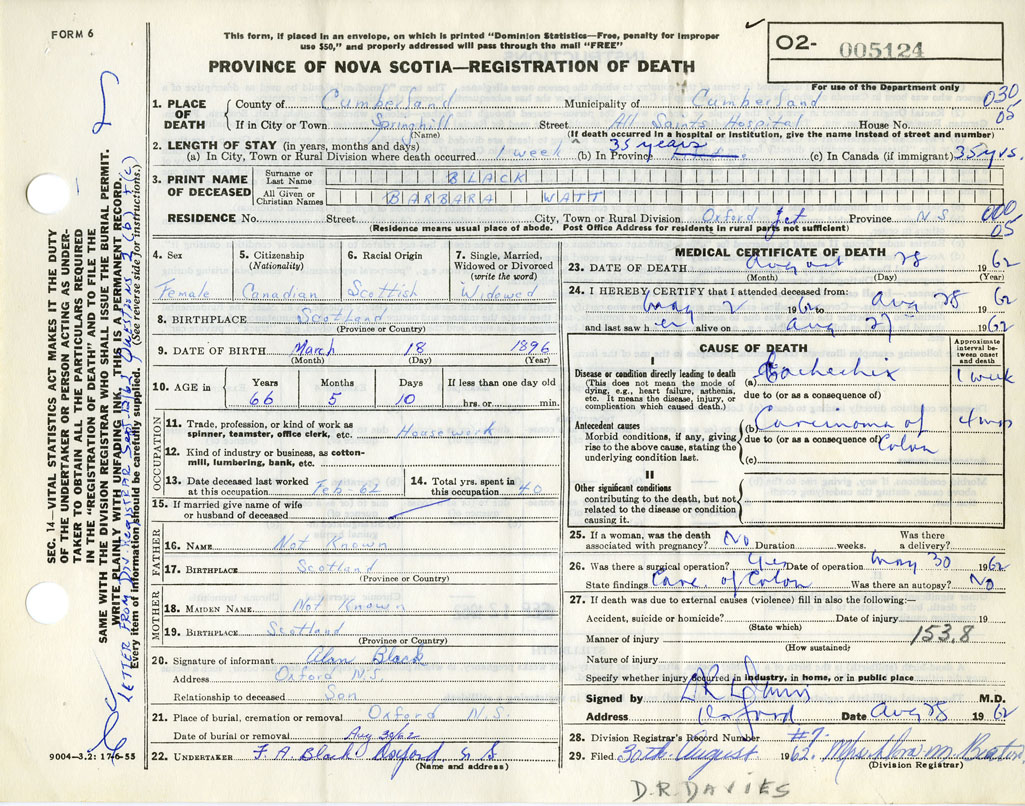 FORM 6
This form, if placed in an envelope, on which is printed "Dominion Statistics—Free, penalty for improper
use $50," and properly addressed will pass through the mail "FREE"
O2- 005124
PROVINCE OF NOVA SCOTIA—REGISTRATION OF DEATH
For use of the Department only
030
05
1. PLACE OF DEATH
County of Cumberland Municipality of Cumberland
If in City or Town Springhill Street All Saints Hospital House No.
(Name) (If death occurred in a Hospital or Institution, give the name instead of street and number)
2. LENGTH OF STAY (in years, months and days)
(a) In City, Town or Rural Division where death occurred 1 week (b) In Province 35 years (c) In Canada (if immigrant) 35 yrs.
3. PRINT NAME OF DECEASED
Surname or Last Name BLACK
All Given or Christian Names BARBARA WATT
RESIDENCE No. Street City, Town or Rural Division Oxford Jct Province N S
000
05
(Residence means usual place of abode. Post Office Address for residents in rural parts not sufficient)
4. Sex
Female
5. Citizenship
(Nationality)
Canadian
6. Racial Origin
Scottish
7. Single, Married,
Widowed or Divorced
(write the word)
Widowed
8. BIRTHPLACE Scotland
(Province or Country)
9. DATE OF BIRTH March 18 1896
(Month) (Day) (Year)
10. AGE in Years Months Days If less than one day old
66 5 10 hrs. or min.
OCCUPATION
11. Trade, profession, or kind of work as
spinner, teamster, office clerk, etc. Housework
12. Kind of industry or business, as cotton-
mill, lumbering, bank, etc.
13. Date deceased last worked
at this occupation Feb 62
14. Total yrs. spent in
this occupation 40
15. If married give name of wife
or husband of deceased
FATHER
16. NAME Not Known
17. BIRTHPLACE Scotland
(Province or Country)
MOTHER
18. MAIDEN NAME Not Known
19. BIRTHPLACE Scotland
(Province or Country)
20. Signature of informant Alan Black
Address Oxford N.S.
Relationship to deceased Son
21. Place of burial, cremation or removal Oxford N S
Date of burial or removal Aug 30/62
22. UNDERTAKER F. A. Black Oxford N S
(Name and address)
MEDICAL CERTIFICATE OF DEATH
23. DATE OF DEATH August 28 1962
(Month) (Day) (Year)
24. I HEREBY CERTIFY that I attended deceased from:
May 2 1962 to Aug 28 1962
and last saw her alive on Aug 27 1962
CAUSE OF DEATH
Approximate
interval be-
tween onset
and death
I
Disease or condition directly leading to death
(This does not mean the mode of
dying, e.g., heart failure, asthenia,
etc. It means the disease, injury, or
complication which caused death.)
(a) 1 week
due to (or as a consequence of)
Antecedent causes
Morbid conditions, if any, giving
rise to the above cause, stating the
underlying condition last.
(b) Carcinoma of 4 mos
due to (or as a consequence of) Colon
(c)
II
Other significant conditions
contributing to the death, but not
related to the disease or condition
causing it.
25. If a woman, was the death
associated with pregnancy? No Duration weeks. Was there
a delivery?
26. Was there a surgical operation? Yes Date of operation May 30 1962
State findings Carc. of Colon Was there an autopsy? No
27. If death was due to external causes (violence) fill in also the following:—
Accident, suicide or homicide? Date of injury 19
(State which)
Manner of injury 153.8
(How sustained)
Nature of injury
Specify whether injury occurred in industry, in home, or in public place
Signed by M.D.
Address Oxford Date Aug 28 1962
28. Division Registrar's Record Number #7.
29. Filed 30th August 1962.
(Division Registrar)
D.R. DAVIES
SEC. 14—VITAL STATISTICS ACT MAKES IT THE DUTY
OF THE UNDERTAKER OR PERSON ACTING AS UNDER-
TAKER TO OBTAIN ALL THE PARTICULARS REQUIRED
IN THE "REGISTRATION OF DEATH" AND TO FILE THE
SAME WITH THE DIVISION REGISTRAR WHO SHALL ISSUE THE BURIAL PERMIT.
WRITE PLAINLY WITH UNFADING INK. THIS IS A PERMANENT RECORD.
Every item of information should be carefully supplied. (See reverse side for instructions.)
LETTER FROM DIV. REGISTRAR
9004—3.2: 17-6-55